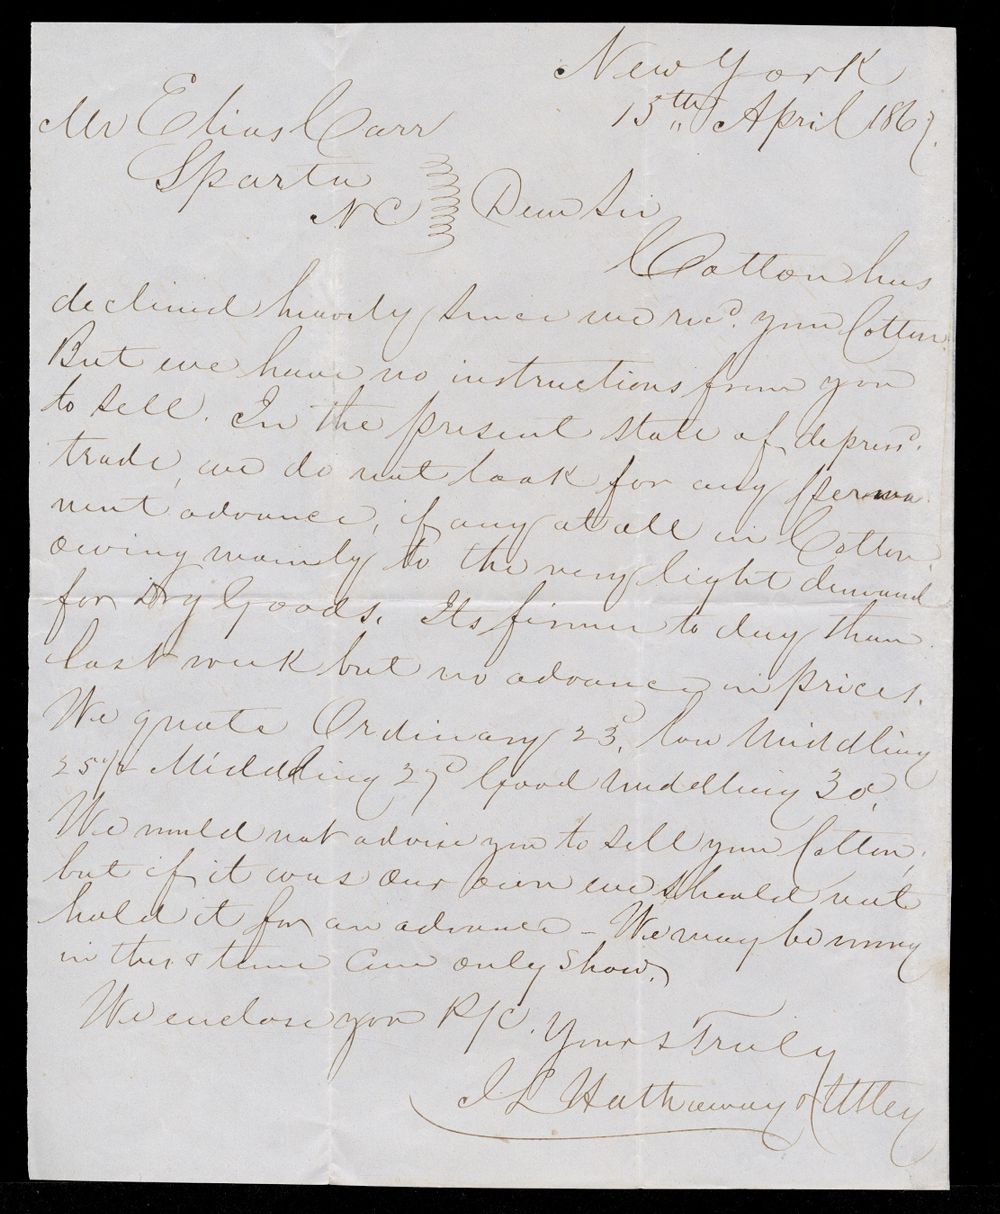 New York
15th April 1867.
Mr Elias Carr
Sparta
NC
Dear Sir
Cotton has
declined heavily since we recd. your Cotton.
But we have no instructions from you
to sell. In the present state of depresd.
trade, we do not look for any perma
nent advance, if any at all in Cotton.
owing mainly to the very light demand
for Dry Goods. Its firmer to day than
last week but no advance in prices.
We quote Ordinary 23c, low Middling
25½ Middling 27c Good Middling 30c,
We would not advise you to sell your Cotton,
but if it was our own we should not
hold it for an advance - We may be wrong
in this & time can only show.
We enclose you P/C.
Yours Truly
J L Hathaway & Utley